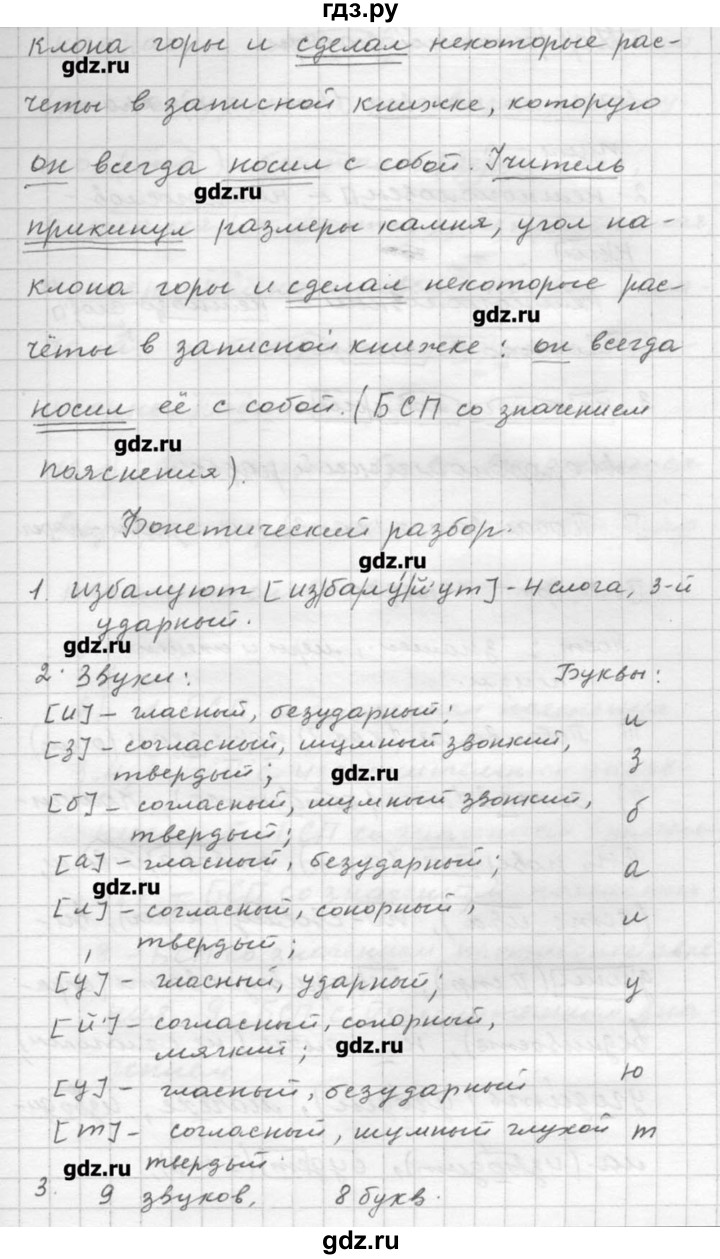 гдз.ру
клона горы и сделал некоторые рас-
gdz.ru
четы в записной книжке, которую
он всегда носил с собой. Учитель
gdz.ru
прикинул размеры камня, угол на-
клона горы и сделал некоторые рас-
gdz.ru
чёты в записной книжке: он всегда
носил её с собой. (БСП со значением
gdz.ru
пояснения).
Фонетический разбор.
gdz.ru
1. избалуют [из/ба/лу́/й'ут] - 4 слога, 3-й
ударный.
gdz.ru
2. Звуки: Буквы:
[и] - гласный, безударный; и
[з] - согласный, шумный звонкий, з
твердый; gdz.ru
[б] - согласный, шумный звонкий, б
твердый;
[а] - гласный, безударный; а
gdz.ru
[л] - согласный, сонорный, л
твердый;
[у] - гласный, ударный; у
[й'] - согласный, сонорный,
мягкий; gdz.ru
ю
[у] - гласный, безударный
[т] - согласный, шумный глухой т
gdz.ru твердый.
3. 9 звуков, 8 букв.
gdz.ru